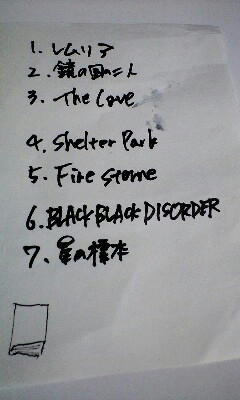 1. レムリア
2. 鏡の国の二人
3. The Cave
4. Shelter Park
5. Fire stone
6. BLACK BLACK DISORDER
7. 星の標本